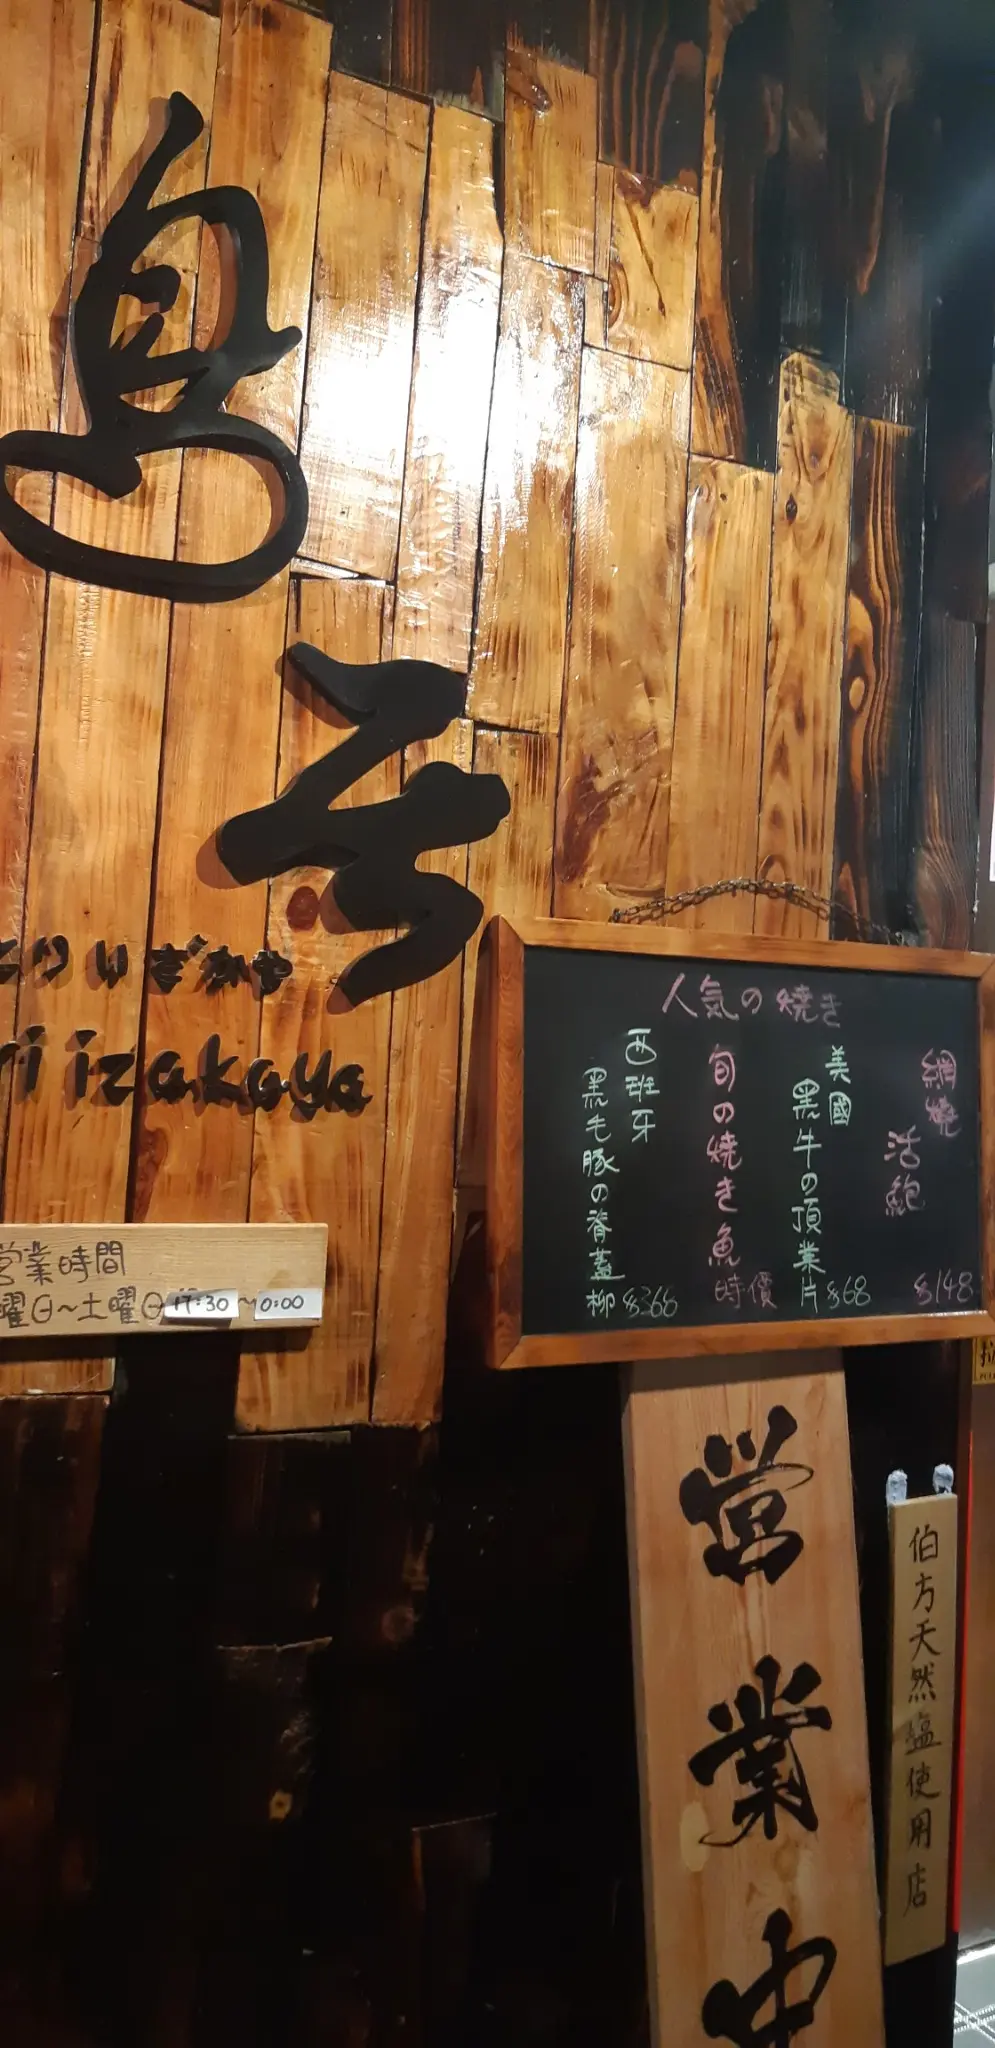 鳥
とりいざかや
ri izakaya
営業時間
曜日～土曜日 17:30～0:00
人気の焼き
網燒
活鮑
$148
美國
黑牛の頂業片 $68
旬の焼き魚
時價
西班牙
黑毛豚の脊蓋柳 $368
営業中
伯方天然塩使用店